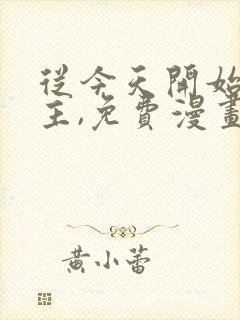 從今天開始
主,免費漫畫
黃小蕾